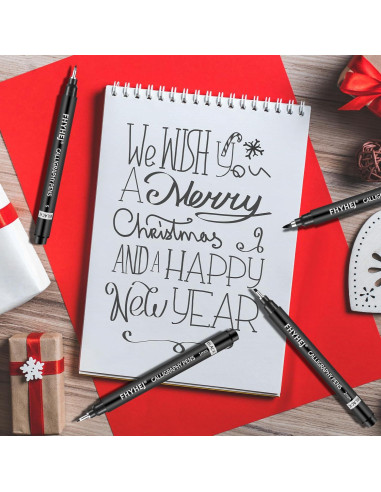 We WISH You
A Merry
Christmas
AND A HAPPY
New YEAR
FHYHEJ CALLIGRAPHY PENS
FHYHEJ CALLIGRAPHY PENS
FHYHEJ CALLIGRAPHY PENS
FHYHEJ CALLIGRAPHY PENS